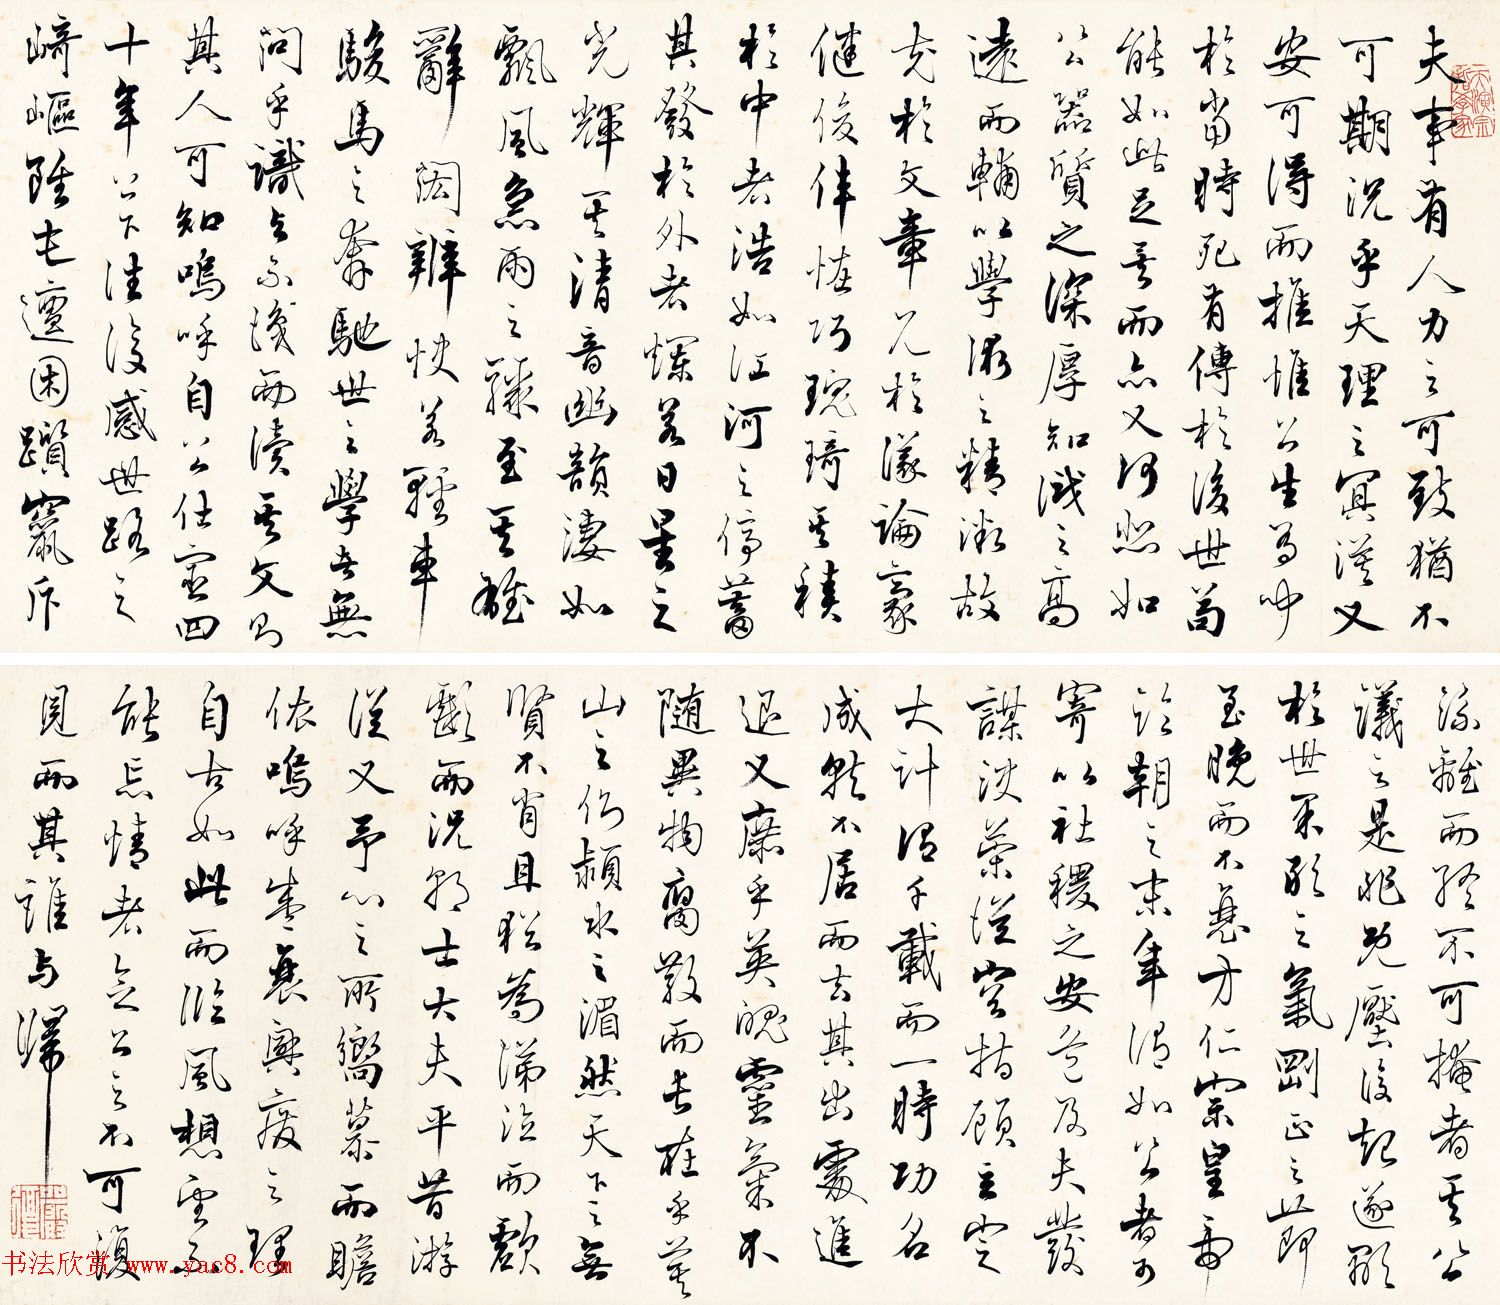 夫事有人力之可致猶不
可期況乎天理之冥漠又
安可得而推惟公生為
於當時死有傳於後世苟
能如此足矣而亦又何悲如
公器質之深厚知識之高
遠而輔以學術之精微故
充於文章見於議論豪
健俊偉怪巧瑰琦其積
於中者浩如江河之停蓄
其發於外者爛若日星之
光輝其清音幽韻淒如
飄風急雨之驟至其雄
辭閎辯快若輕車
駿馬之奔馳世之學者無
問乎識與不識而讀其文則
其人可知嗚呼自公仕宦四
十年上下往復感世路之
崎嶇雖屯邅困躓竄斥
流離而終不可掩者其公
議之是非既壓復起遂顯
於世果敢之氣剛正之節
至晚而不衰方仁宗皇帝
臨朝之末年謂如公者可
寄以社稷之安危及夫發
謀決策從容指顧立定
大計謂千載而一時功名
成就不居而去其出處進
退又庶乎英魄靈氣不
隨異物腐散而長在乎箕
山之側潁水之湄然天下之無
賢不肖且猶為涕泣而歔
欷而況朝士大夫平昔游
從又予心之所嚮慕而瞻
依嗚呼盛衰興廢之理
自古如此而臨風想望不
能忘情者念公之不可復
見而其誰與歸
书法欣赏 www.yac8.com